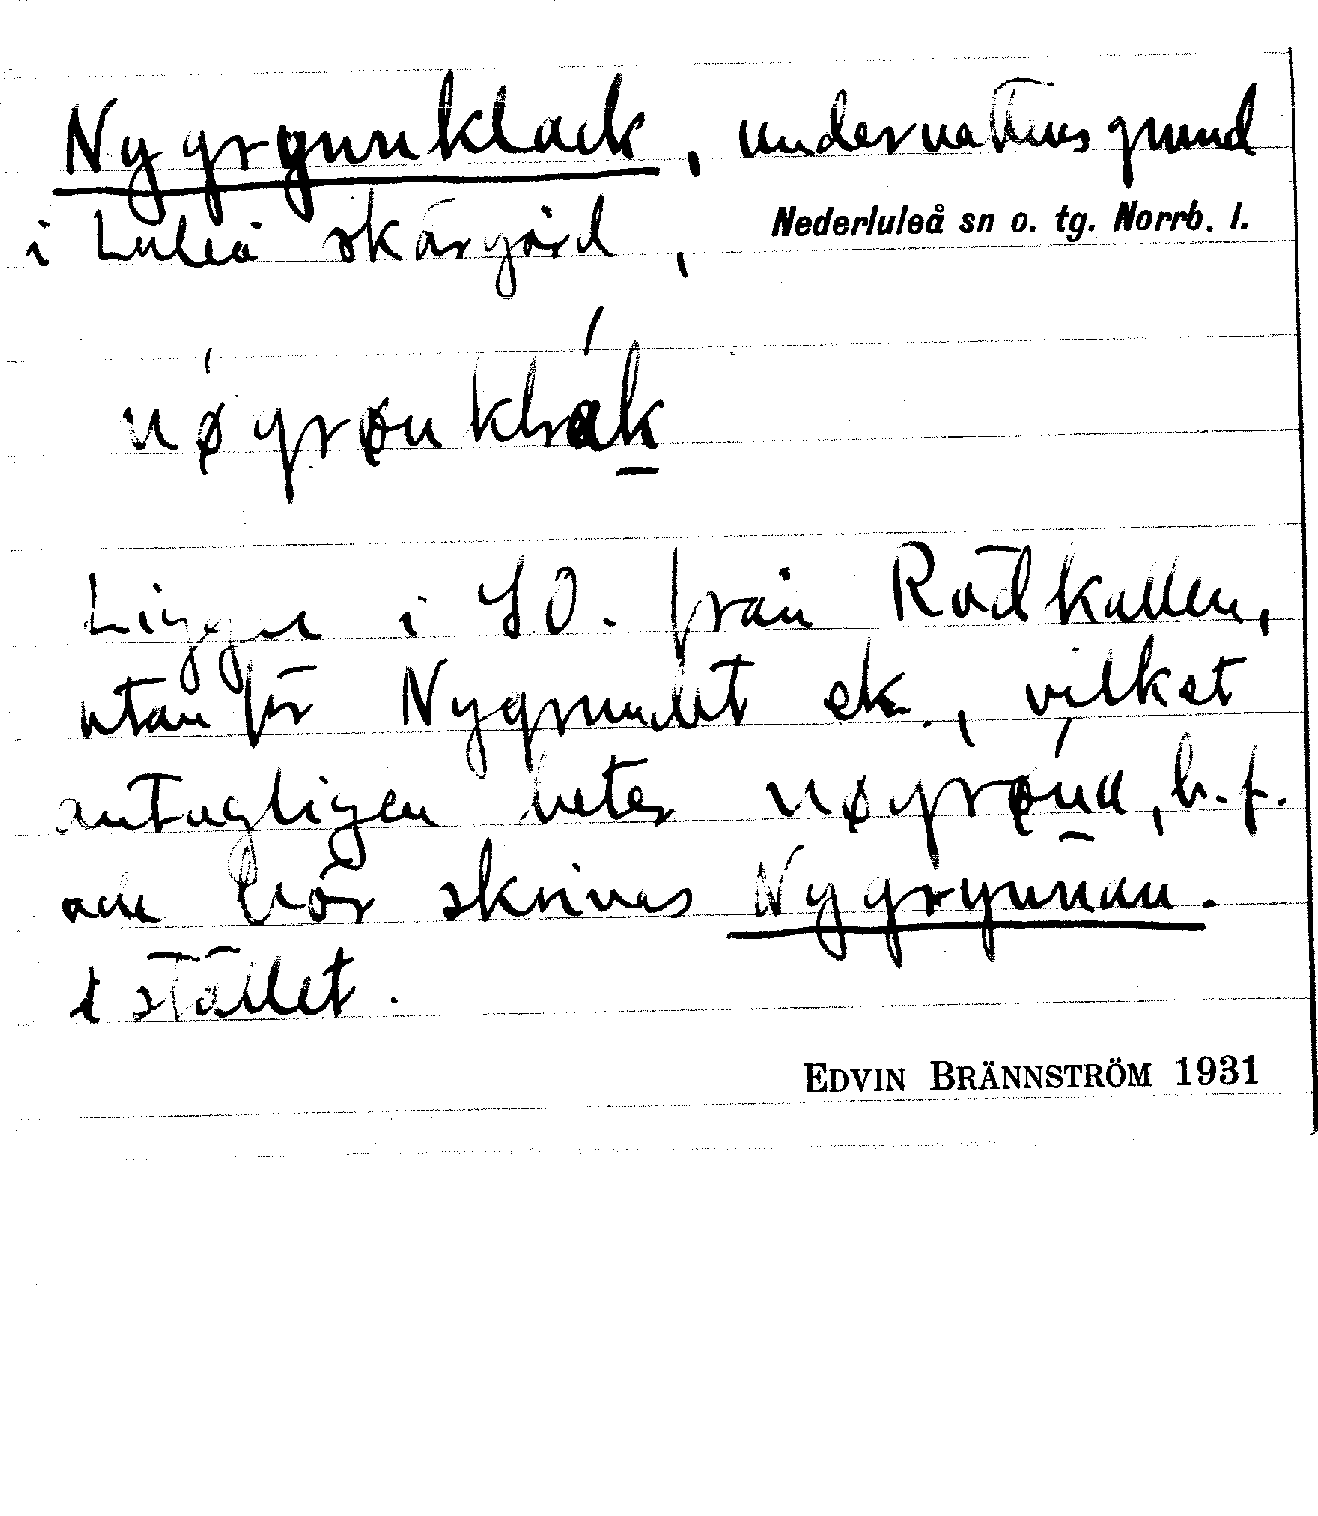 Nygrynnklack, undervattensgrund
i Luleå skärgård,
Nederluleå sn o. tg. Norrb. l.
nøgrønkḷák
Ligger i SO. från Rödkallen,
utanför Nygrundet ek., vilket
antagligen heter nøgrøńa, b. f.
och bör skrivas Nygrynnan.
i stället.
EDVIN BRÄNNSTRÖM 1931